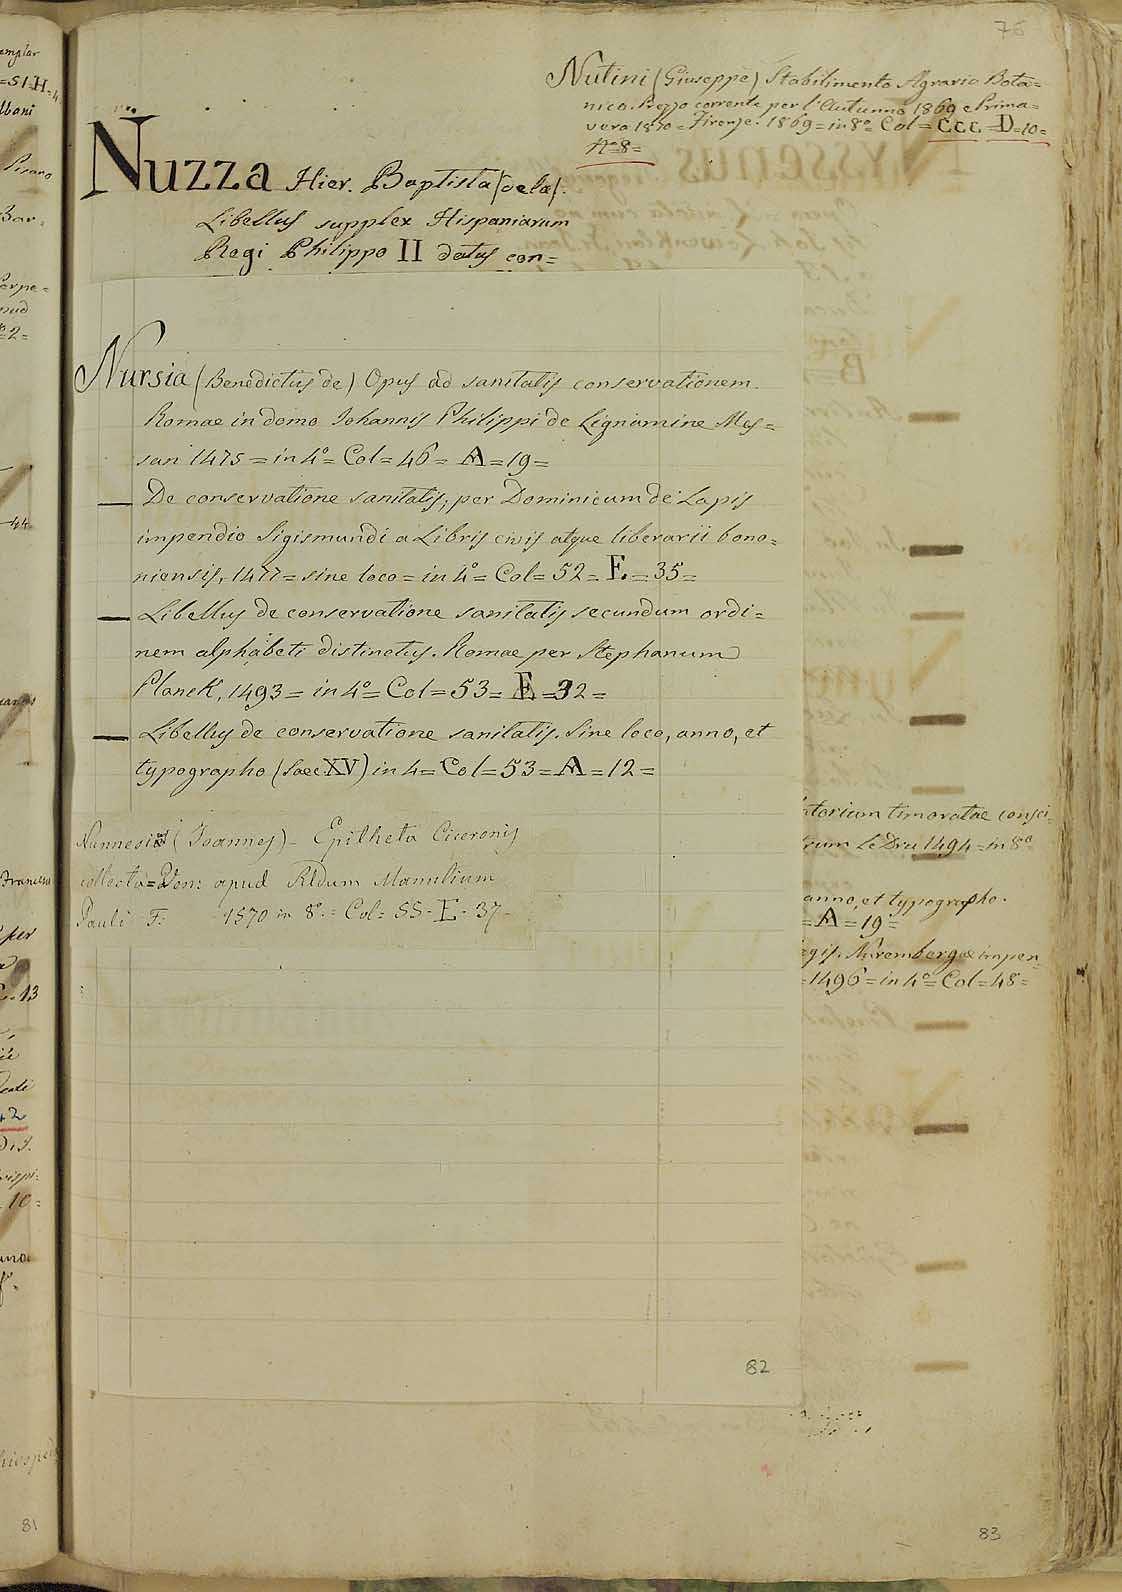 76
Nutini (Giuseppe) Stabilimento Agrario Bota=
nico. Prezzo corrente per l'Autunno 1869 e Prima=
vera 1870 = Firenze. 1869 = in 8º = Col = CCC = D = 10 =
Nº 8 =
Nuzza Hier. Baptista (de la).
Libellus supplex Hispaniarum
Regi Philippo II datus con=
Nursia (Benedictus de) Opus ad sanitatis conservationem.
Romae in domo Iohannis Philippi de Lignamine Mes=
san 1475 = in 4º = Col = 46 = A = 19 =
— De conservatione sanitatis, per Dominicum de Lapis
impendio Sigismundi a Libris civis atque liberarii bono=
niensis, 1477 = sine loco = in 4º = Col = 52 = F. = 35 =
— Libellus de conservatione sanitatis secundum ordi=
nem alphabeti distinctus. Romae per Stephanum
Planck, 1493 = in 4º = Col = 53 = E = 32 =
— Libellus de conservatione sanitatis. Sine loco, anno, et
typographo (saec. XV) in 4 = Col = 53 = A = 12 =
torium timoratae consci
1494 = in 8º
Nunnesius (Joannes) - Epitheta Ciceronis
collecta = Ven: apud Aldum Manutium
Pauli F: 1570 in 8º. = Col = 55 - E - 37 -
anno, et typographo.
= A = 19 =
egis. Nurembergae impen
= 1496 = in 4º = Col = 48 =
82
81
83